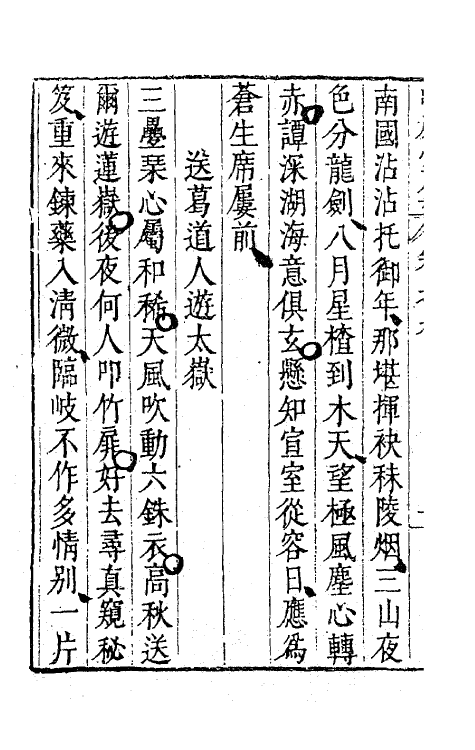 南國沾沾托御年那堪揮袂秣陵烟三山夜
色分龍劍八月星楂到木天望極風塵心轉
赤譚深湖海意俱玄懸知宣室從容日應爲
蒼生席屢前
送葛道人遊太嶽
三疊琹心屬和稀天風吹動六銖衣高秋送
爾遊蓮嶽後夜何人叩竹扉好去尋真窺秘
笈重來鍊藥入清微臨岐不作多情别一片